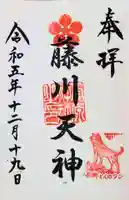 奉拝
藤川天神
令和五年十二月十九日